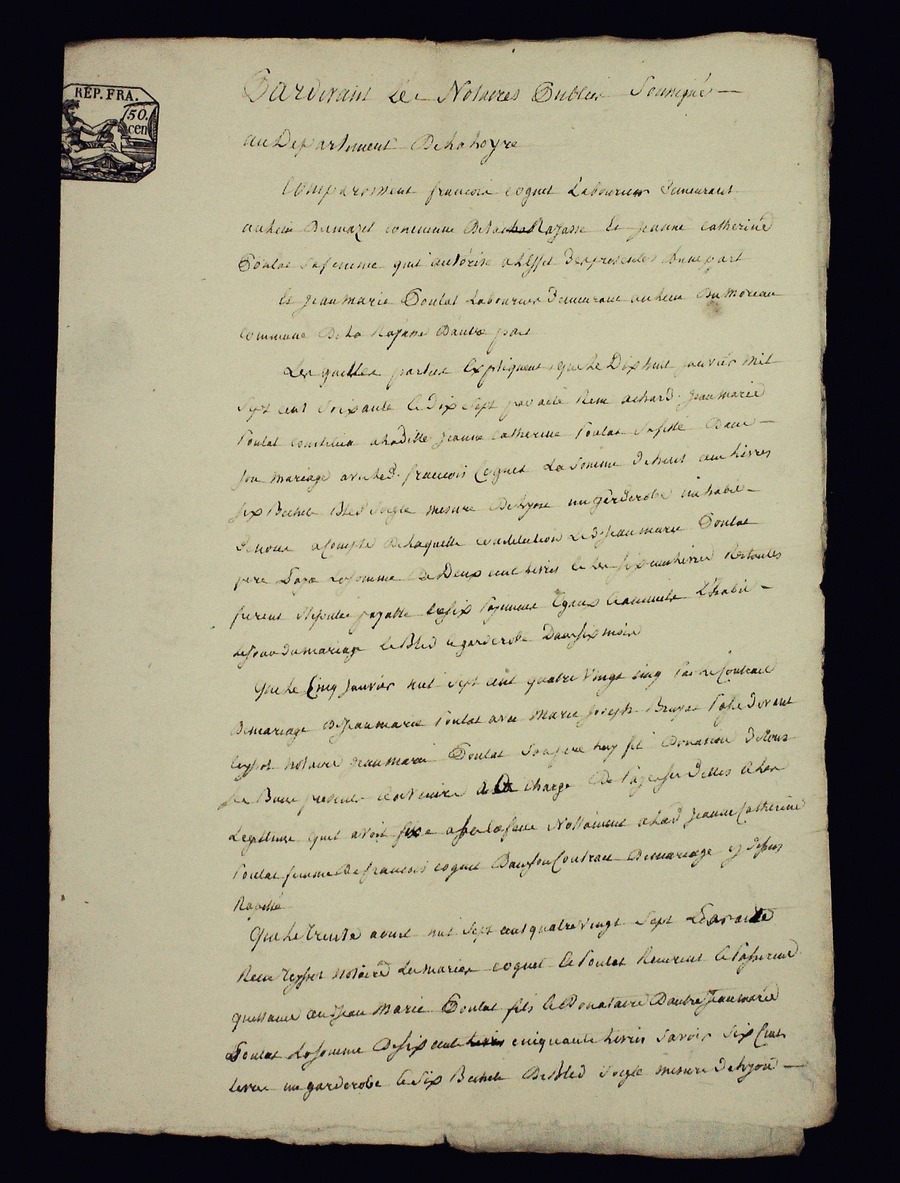 RÉP. FRA.
50.
cen
Pardevant Les Notaires Publics Sousignés
au Departement De la Loyre
Comparoissent francois coquet Laboureur demeurant
au lieu Du mazel commune De la Rajasse Et jeanne catherine
Poulat sa femme quil autorise a L'effet des presentes Dune part
Et jean marie Poulat Laboureur demeurant au lieu Du moreau
commune De la Rajasse D'autre part
Les quelles parties Expliquent que le Dix huit janvier mil
sept cent soixante et Dix sept par acte Recu achard jean marie
Poulat constitua a ladite jeanne catherine Poulat sa fille Dans
son mariage avec led. francois Coquet La somme de huit cent livres
six Bichets Bled seigle mesure De Lyon un garderobe un habit
De noce a compte De laquelle constitution Led. jean marie Poulat
pere Paya La somme De Deux cent livres et Les six cent livres Restantes
furent stipulés payable En six payement Egaux Et annuels L'habit
le jour du mariage Le Bled le garderobe Dans six mois
Que le Cinq janvier mil sept cent quatre vingt cinq Par le Contrat
De mariage De jean marie Poulat avec marie joseph Bruyas Passé Devant
teyssot Notaire jean marie Poulat son pere luy fit Donation De tous
ses Biens presents et a venir a la Charge De Payer
Legitime quil avoit fixe a ses enfans Nottament a lad. jeanne Catherine
Poulat femme De francois coquet Dans son Contrat De mariage cy dessus
Rapellé
Que le trente avril mil sept cent quatre vingt sept
Recu teyssot Notaire Les maries coquet Et Poulat Recurent Et Passerent
quittance au d. jean marie Poulat fils Et Donataire D'autre jean marie
Poulat La somme De six cent livres cinquante livres savoir six Cent
livres un garderobe Et six Bichets De Bled seigle mesure De Lyon